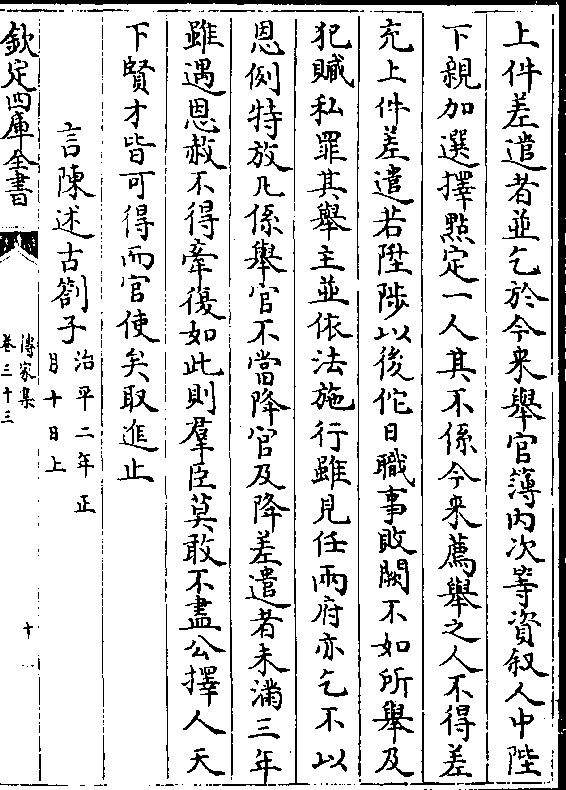 上件差遣者並乞於今来舉官簿内次等資叙人中陛
下親加選擇點定一人其不係今来薦舉之人不得差
充上件差遣若陞陟以後佗日職事敗闕不如所舉及
犯贓私罪其舉主並依法施行雖見任兩府亦乞不以
恩例特放凡係舉官不當降官及降差遣者未滿三年
雖遇恩赦不得牽復如此則羣臣莫敢不盡公擇人天
下賢才皆可得而官使矣取進止
言陳述古劄子治平二年正
月十日上
欽定四庫全書
傳家集
卷三十三
十